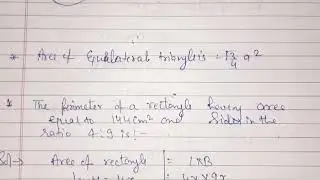 * Area of Equilateral triangle is = √3/4 a²
* The perimeter of a rectangle having area
equal to 144cm² and sides in the
ratio 4:9 is :-
Sol→ Area of rectangle = L×B
= 4x×9x